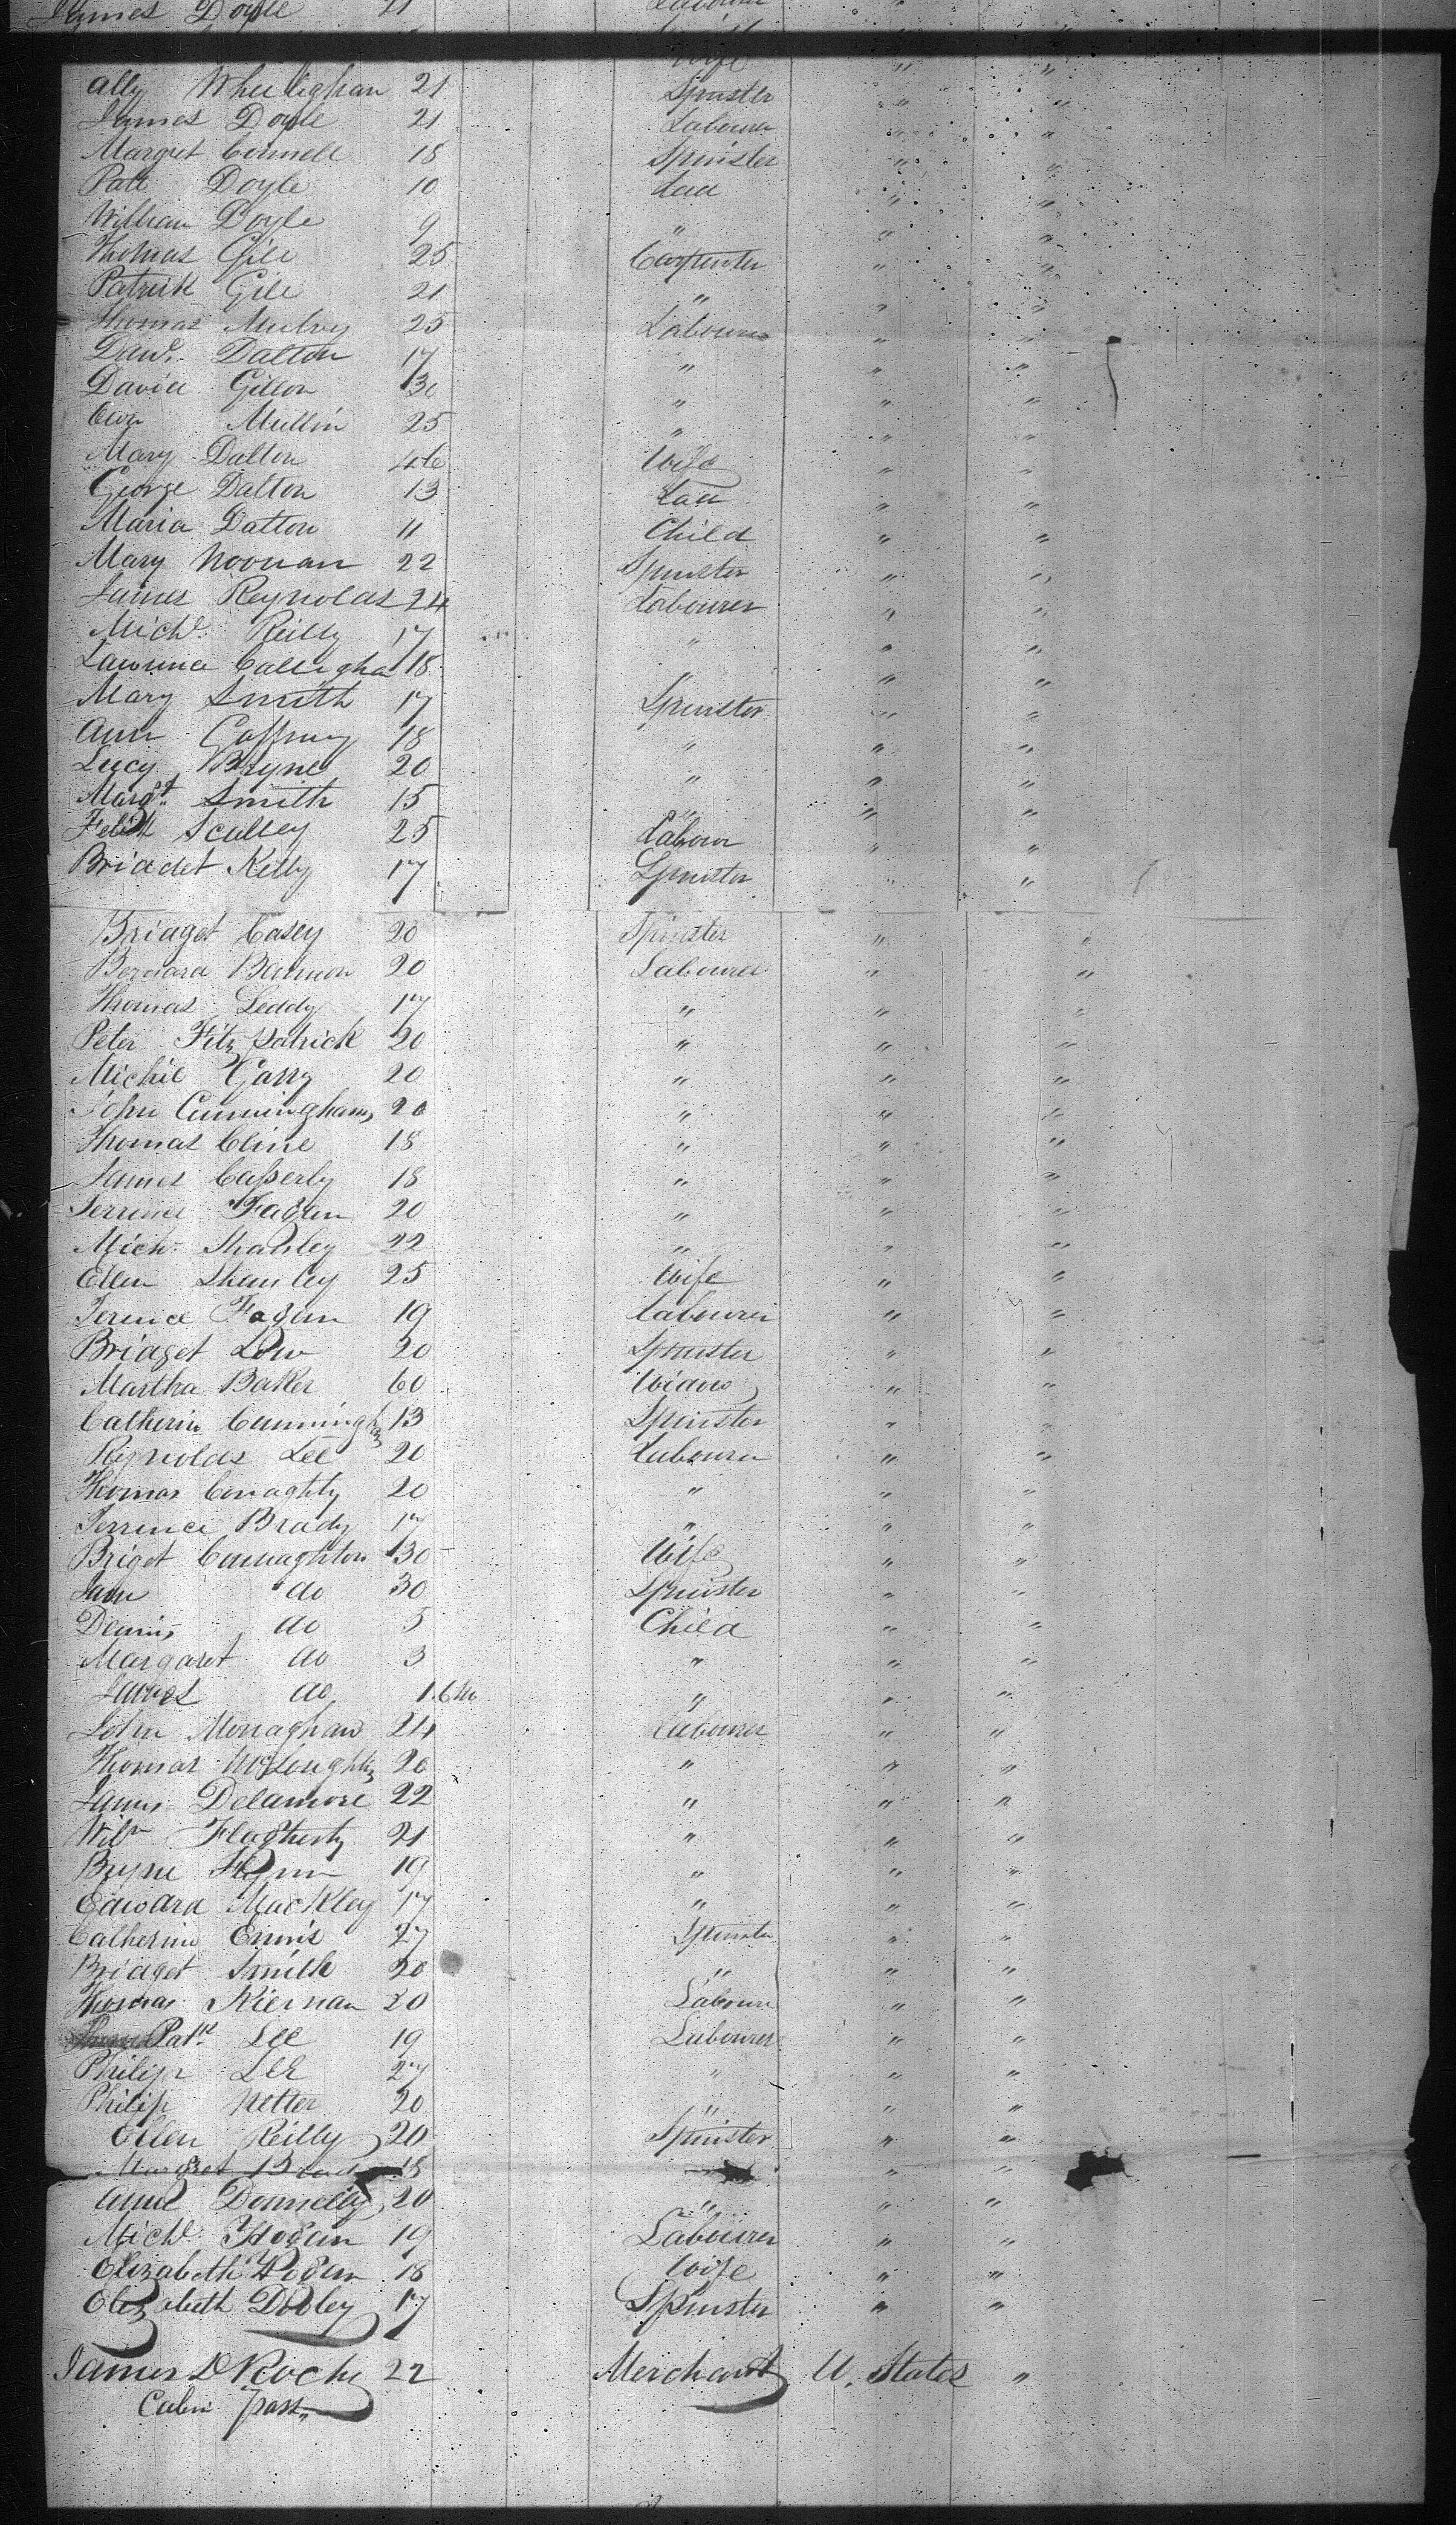 James Doyle 21 Labourer
Wife " "
Ally Wheelighan 21 Spinster " "
James Doyle 21 Labourer " "
Margret Connell 18 Spinster " "
Patt Doyle 10 Lad " "
William Doyle 9 " " "
Thomas Gill 25 Carpenter " "
Patrick Gill 21 " " "
Thomas Mulvy 25 Labourer " "
Danl. Dalton 17 " " "
David Gillon 30 " " "
Own Mullin 25 " " "
Mary Dalton 46 Wife " "
George Dalton 13 Lad " "
Maria Dalton 11 Child " "
Mary Noonan 22 Spinster " "
James Reynolds 24 Labourer " "
Michl. Reilly 17 " " "
Lawrence Calligha 18 " " "
Mary Smith 17 Spinster " "
Ann Caffrey 18 " " "
Lucy Bryne 20 " " "
Margt. Smith 15 " " "
Felix Sculley 25 Labour " "
Briddet Kelly 17 Spinster " "
Bridget Casey 20 Spinster " "
Bernard Bannon 20 Labourer " "
Thomas Leddy 17 " " "
Peter Fitzpatrick 20 " " "
Michil Garry 20 " " "
John Cunningham 20 " " "
Thomas Cline 18 " " "
James Casserly 18 " " "
Terrence Fagan 20 " " "
Michl. Shanley 22 " " "
Ellen Shanley 25 Wife " "
Terence Fagan 19 Labourer " "
Bridget Low 20 Spinster " "
Martha Baker 60 Widow " "
Catherin Cunningh 13 Spinster " "
Reynolds Lee 20 Labourer " "
Thomas Conaghty 20 " " "
Terrence Brady 17 " " "
Briget Connaghton 30 Wife " "
Jane do 30 Spinster " "
Dennis do 5 Child " "
Margaret do 3 " " "
James do 1.6m " " "
John Monaghan 24 Labourer " "
Thomas McLoughlin 20 " " "
James Delamore 22 " " "
Wilm Flagherty 21 " " "
Bryne Flynn 19 " " "
Edward Mackley 17 " " "
Catherine Ennis 27 Spinster " "
Bridget Smith 20 " " "
Thomas Kiernan 20 Labourer " "
Patk. Lee 19 Labourer " "
Philip Lee 27 " " "
Philip Netter 20 " " "
Ellen Reilly 20 Spinster " "
Margret 18 " "
Anne Donnelly 20 " " "
Michl. Hogan 19 Labourer " "
Elizabeth Hogan 18 Wife " "
Elizabeth Dooley 17 Spinster " "
James D Roche 22 Merchant U. States "
Cabin pass.